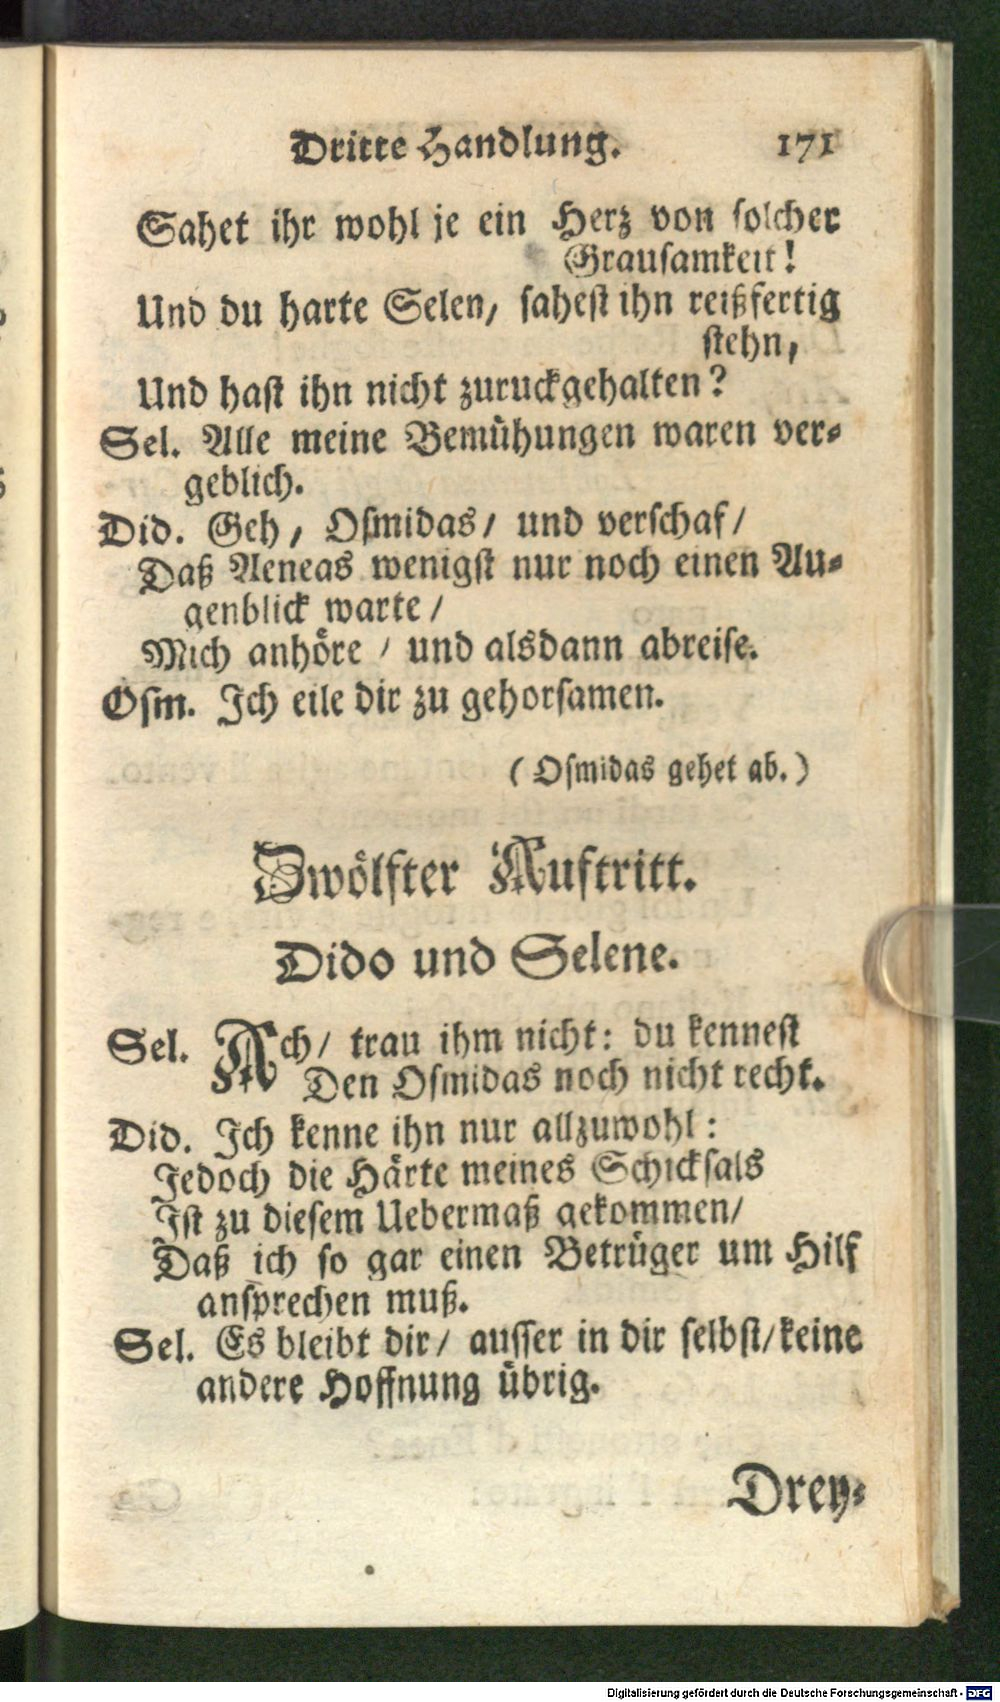 Dritte Handlung. 171
Sahet ihr wohl je ein Herz von solcher
Grausamkeit!
Und du harte Selen/ sahest ihn reißfertig
stehn,
Und hast ihn nicht zuruckgehalten?
Sel. Alle meine Bemühungen waren ver-
geblich.
Did. Geh, Osmidas/ und verschaf/
Daß Aeneas wenigst nur noch einen Au-
genblick warte/
Mich anhöre / und alsdann abreise.
Osm. Ich eile dir zu gehorsamen.
(Osmidas gehet ab.)
Zwölfter Auftritt.
Dido und Selene.
Sel. Ach/ trau ihm nicht: du kennest
Den Osmidas noch nicht recht.
Did. Ich kenne ihn nur allzuwohl:
Jedoch die Härte meines Schicksals
Ist zu diesem Uebermaß gekommen/
Daß ich so gar einen Betrüger um Hilf
ansprechen muß.
Sel. Es bleibt dir/ ausser in dir selbst/keine
andere Hoffnung übrig.
Drey-
Digitalisierung gefördert durch die Deutsche Forschungsgemeinschaft - DFG